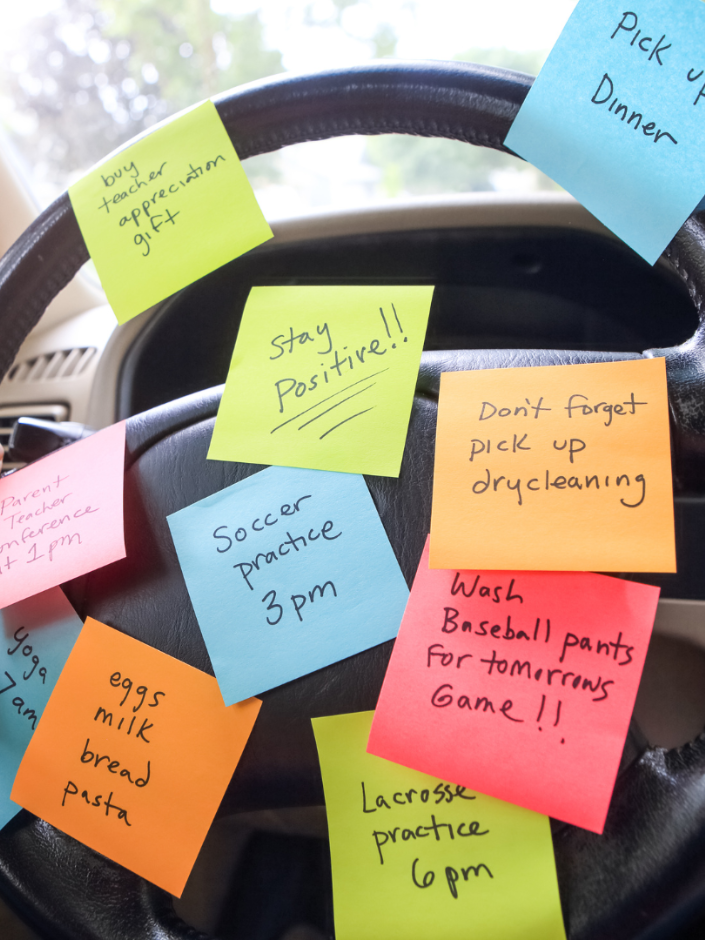 Pick up
Dinner
buy
teacher
appreciation
gift
Stay
Positive!!
Don't forget
pick up
drycleaning
Parent
Teacher
onference
t 1pm
Soccer
practice
3pm
Wash
Baseball pants
For tomorrows
Game!!
Yoga
7am
eggs
milk
bread
pasta
Lacrosse
practice
6pm